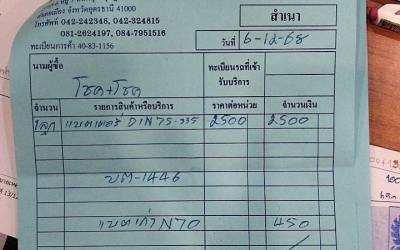 จังหวัดอุดรธานี 41000
โทรศัพท์ 042-242348, 042-324815
081-2624197, 084-7951516
ทะเบียนการค้า 40-83-1156
สำเนา
วันที่ 6-12-68
นามผู้ซื้อ
โชค+โชค
ทะเบียนรถที่เข้ารับบริการ
จำนวน รายการสินค้าหรือบริการ ราคาต่อหน่วย จำนวนเงิน
1ลูก แบตเตอรี่ DIN75- 2500 2500
บต-1446
แบตเก่า N70 450